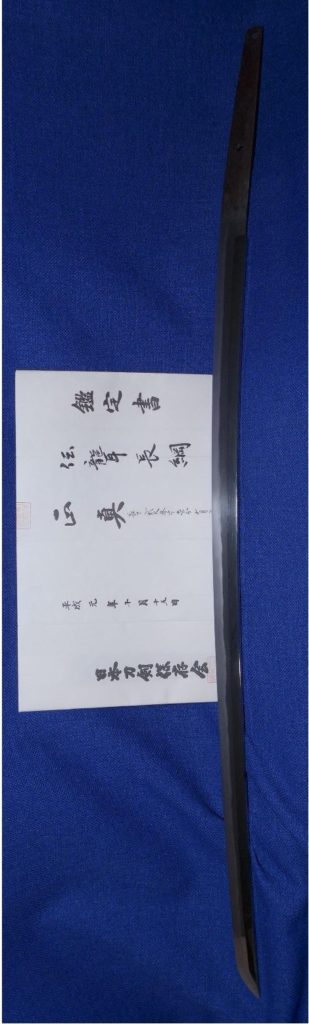 鑑定書
伝聾長綱
正真
平成元年十月十五日
日本刀剣保存会